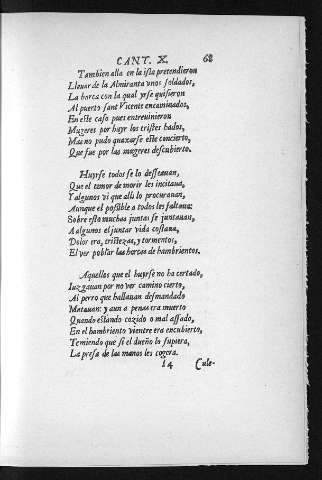 CANT. X. 68
Tambien alla en la isla pretendieron
Lleuar de la Almiranta vnos soldados,
La barca con la qual yrse quisieron
Al puerto sant Vicente encaminados,
En este caso pues entreuinieron
Mugeres por huyr los tristes hados,
Mas no pudo quaxarse este concierto,
Que fue por las mugeres descubierto.
Huyrse todos se lo desseauan,
Que el temor de morir les incitaua,
Y algunos vi que alli lo procurauan,
Aunque el possible a todos les faltaua:
Sobre esto muchas juntas se juntauan,
A algunos el juntar vida costaua,
Dolor era, tristezas, y tormentos,
El ver poblar las horcas de hambrientos.
Aquellos que el huyrse no ha certado,
Iuzgauan por no ver camino cierto,
Al perro que hallauan desmandado
Matauan: y aun a penas era muerto
Quando estando cozido o mal assado,
En el hambriento vientre era encubierto,
Temiendo que si el dueño lo supiera,
La presa de las manos les cogera.
I 4 Cule-